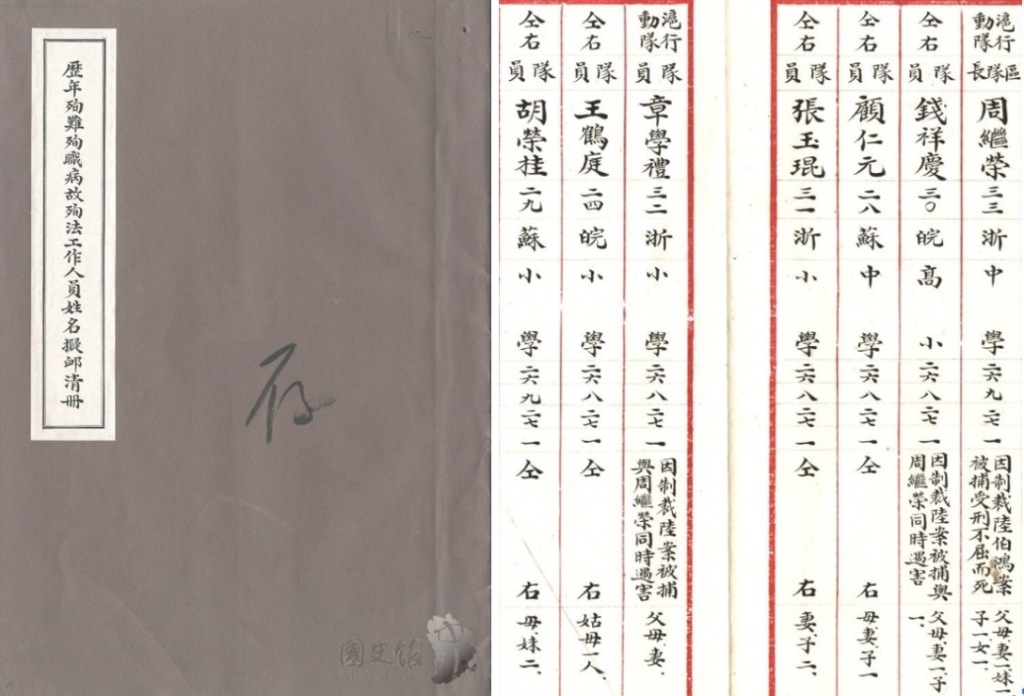 歷年殉難殉職病故殉法工作人員姓名擬卹清冊
存
國史館
滬行區動隊隊長 周繼榮 三三 浙 中學 二六 九 二七 一 因制裁陸伯鴻案被捕受刑不屈而死 父.母.妻一妹一子一.女一.
仝右 隊員 錢祥慶 三〇 皖 高小 二六 八 二七 一 因制裁陸案被捕與周繼榮同時遇害 父.母.妻一子一.
仝右 隊員 顧仁元 二八 蘇 中學 二六 八 二七 一 仝右 母.妻.子一
仝右 隊員 張玉琨 三一 浙 小學 二六 八 二七 一 仝右 妻.子二.
滬行動隊 隊員 章學禮 三二 浙 小學 二六 八 二七 一 因制裁陸案被捕與周繼榮同時遇害 父.母.妻.
仝右 隊員 王鶴庭 二四 皖 小學 二六 八 二七 一 仝右 姑母一人.
仝右 隊員 胡榮桂 二九 蘇 小學 二六 九 二七 一 仝右 母.妹二.